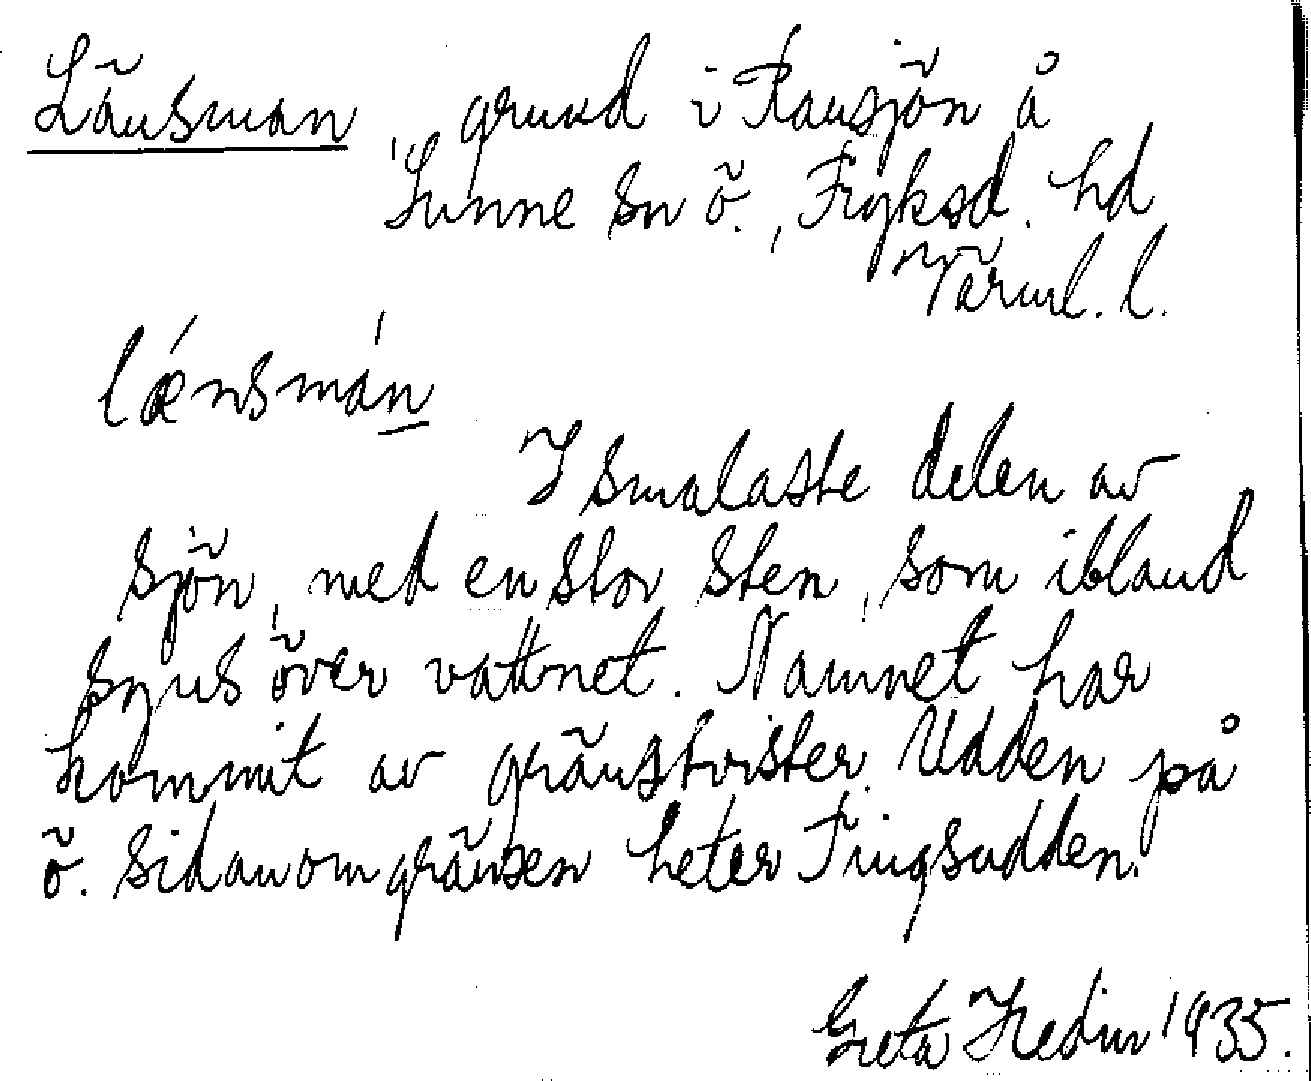 Länsman grund i Ransjön å
Sunne sn ö., Fryksd. hd
Värml. l.
lǽnsmán
I smalaste delen av
sjön, med en stor sten, som ibland
synes över vattnet. Namnet har
kommit av gränstvister. Udden på
ö. sidan om gränsen heter Tingsudden.
Greta Hedin 1935.